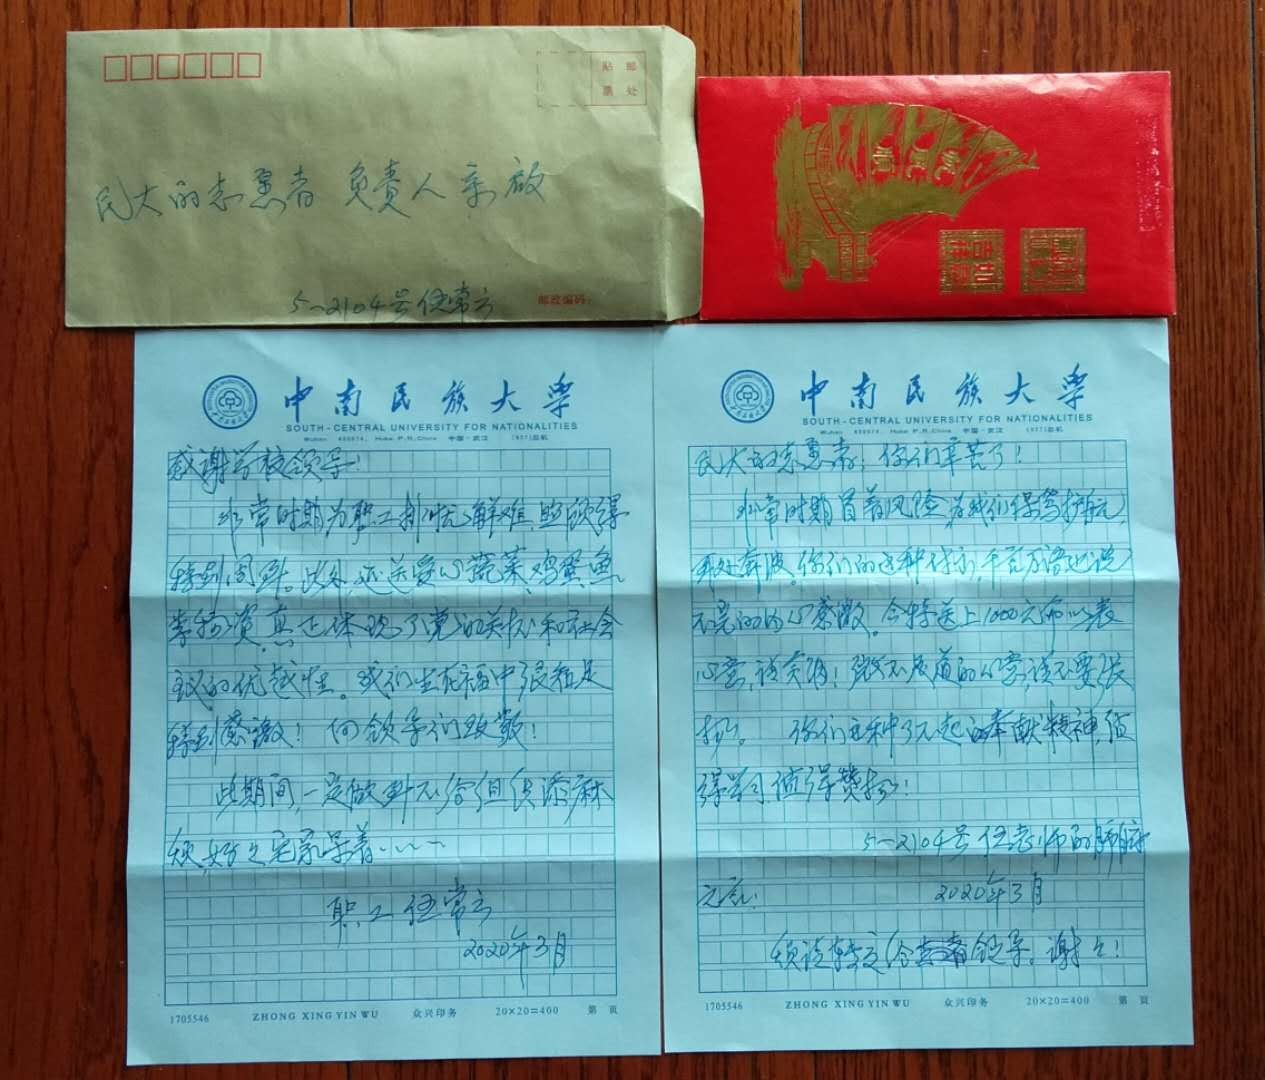 贴 邮
票 处
民大的志愿者 负责人亲启
5-2104号任常云
邮政编码:
中南民族大学
SOUTH-CENTRAL UNIVERSITY FOR NATIONALITIES
感谢学校领导!
非常时期为职工排忧解难,照顾得
特别周到。此外,还送爱心蔬菜、鸡蛋、鱼
等物资,真正体现了党的关怀和社会
主义的优越性。我们生在福中很知足
特别感激!向领导们致敬!
此期间,一定做到不给组织添麻
烦,好好宅家呆着……
职工任常云
2020年3月
1705546 ZHONG XING YIN WU 众兴印务 20×20=400 第 页
中南民族大学
SOUTH-CENTRAL UNIVERSITY FOR NATIONALITIES
民大的志愿者:你们辛苦了!
非常时期冒着风险,为我们保驾护航,
奔波。你们的这种付出,千言万语也说
不完的内心感激。今特送上1000元币以表
心意,请笑纳!微不足道的心意,请不要张
扬。 你们这种了不起的奉献精神,值
得学习值得赞扬!
5-2104号任老师的肺腑
之言!
2020年3月
烦请转交给 领导。谢谢!
1705546 ZHONG XING YIN WU 众兴印务 20×20=400 第 页